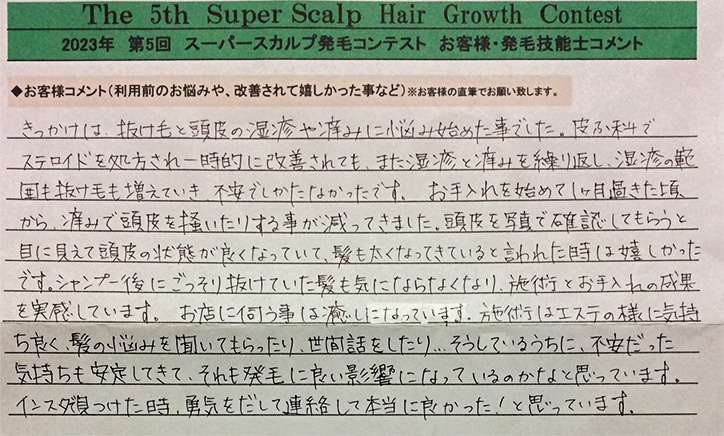 The 5th Super Scalp Hair Growth Contest
2023年 第5回 スーパースカルプ発毛コンテスト お客様・発毛技能士コメント
◆お客様コメント(利用前のお悩みや、改善されて嬉しかった事など)※お客様の直筆でお願い致します。
きっかけは、抜け毛と頭皮の湿疹や痒みに悩み始めた事でした。皮ふ科で
ステロイドを処方され一時的に改善されても、また湿疹と痒みを繰り返し、湿疹の範
囲も抜け毛も増えていき、不安でしかたなかったです。 お手入れを始めて1ヶ月過ぎた頃
から、痒みで頭皮を掻いたりする事が減ってきました。頭皮を写真で確認してもらうと
目に見えて頭皮の状態が良くなっていて、髪も太くなってきていると言われた時は嬉しかった
です。シャンプー後にごっそり抜けていた髪も気にならなくなり、施術とお手入れの成果
を実感しています。 お店に伺う事は癒しになっています。施術はエステの様に気持
ち良く、髪の悩みを聞いてもらったり、世間話をしたり…そうしているうちに、不安だった
気持ちも安定してきて、それも発毛に良い影響になっているのかなと思っています。
インスタ見つけた時、勇気をだして連絡して本当に良かった!と思っています。